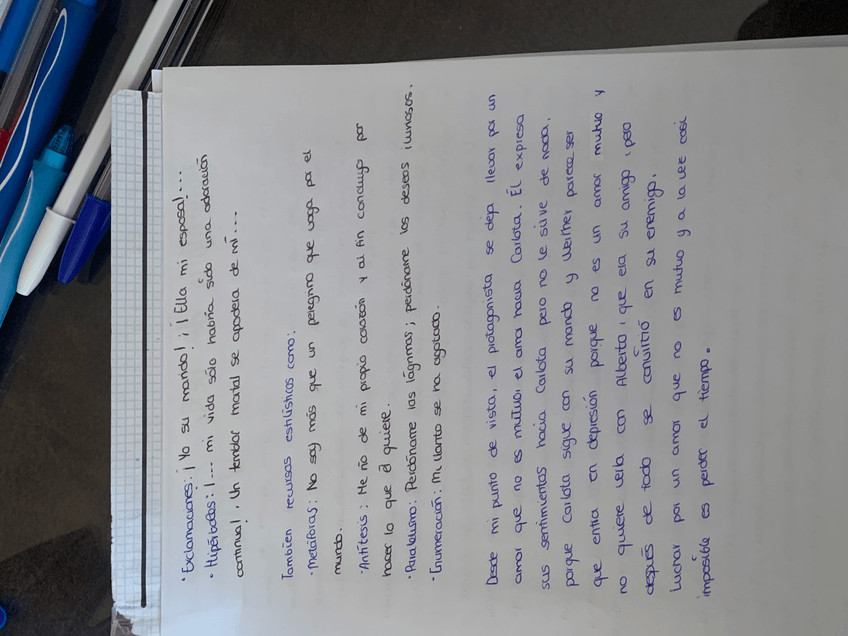 · Exclamaciones: ¡Yo su marido! ¡¡Ella mi esposa!...
· Hipérboles: ¡... mi vida sólo habría sido una adoración
continua!. Un temblor mortal se apodera de mí...
También recursos estilísticos como:
· Metáforas: No soy más que un peregrino que vaga por el
mundo.
· Antítesis: Me río de mi propio corazón y al fin concluyo por
hacer lo que él quiere.
· Paralelismo: Perdóname las lágrimas; perdóname los deseos ilunosos.
· Enumeración: Mi llanto se ha agotado.
Desde mi punto de vista, el protagonista se deja llevar por un
amor que no es mutuo: el amor hacia Carlota. Él expresa
sus sentimientos hacia Carlota pero no le sirve de nada,
porque Carlota sigue con su marido y Werther parece ser
que entra en depresión porque no es un amor mutuo y
no quiere verla con Alberto, que era su amigo, pero
después de todo se convirtió en su enemigo.
Luchar por un amor que no es mutuo y a la vez casi
imposible es perder el tiempo.